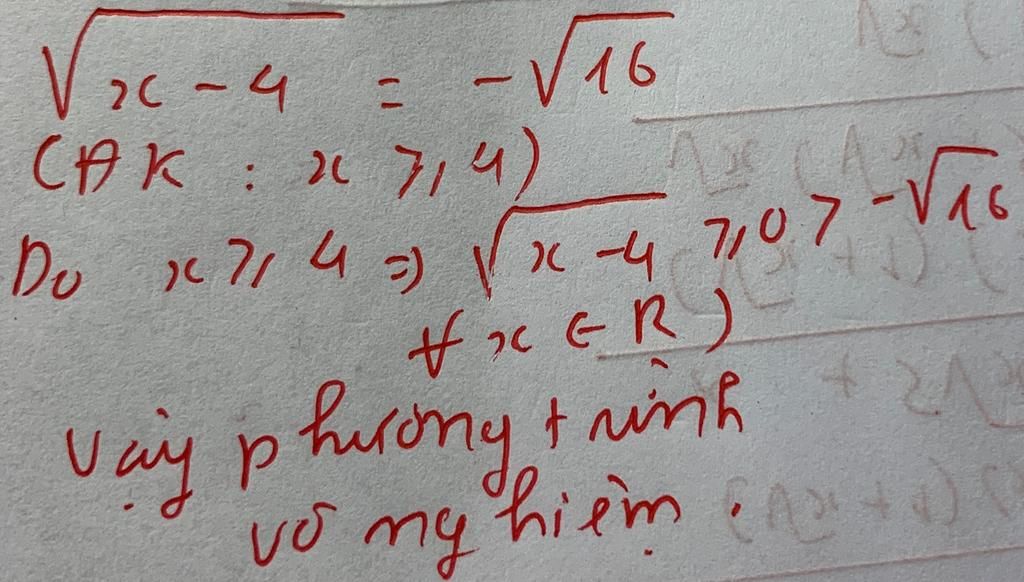 √x - 4 = -√16
(ĐK : x ≥ 4)
Do x ≥ 4 => √x - 4 ≥ 0 > -√16
∀ x ∈ R)
Vậy phương trình
vô nghiệm.